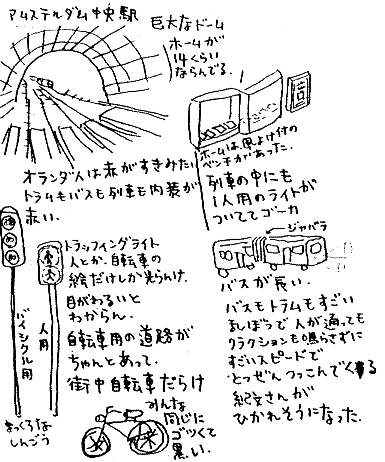 アムステルダム中央駅
巨大なドーム
ホームが
14くらい
ならんでる.
ホームは風よけ付の
ベンチがあった.
オランダ人は赤がすきみたい
トラムもバスも列車も内装が
赤い.
列車の中にも
1人用のライトが
ついててゴーカ
トラッフィングライト
人とか、自転車の
絵だけしか光らんけ.
目がわるいと
わからん.
自転車用の道路が
ちゃんとあって.
街中自転車だらけ
バイシクル用
人用
まっくろな
しんごう
みんな
同じに
ゴツくて
黒い.
ジャバラ
バスが長い.
バスもトラムもすごい
らんぼうで人が通っても
クラクションも鳴らさずに
すごいスピードで
とつぜんつっこんでくる
紀文さんが
ひかれそうになった.